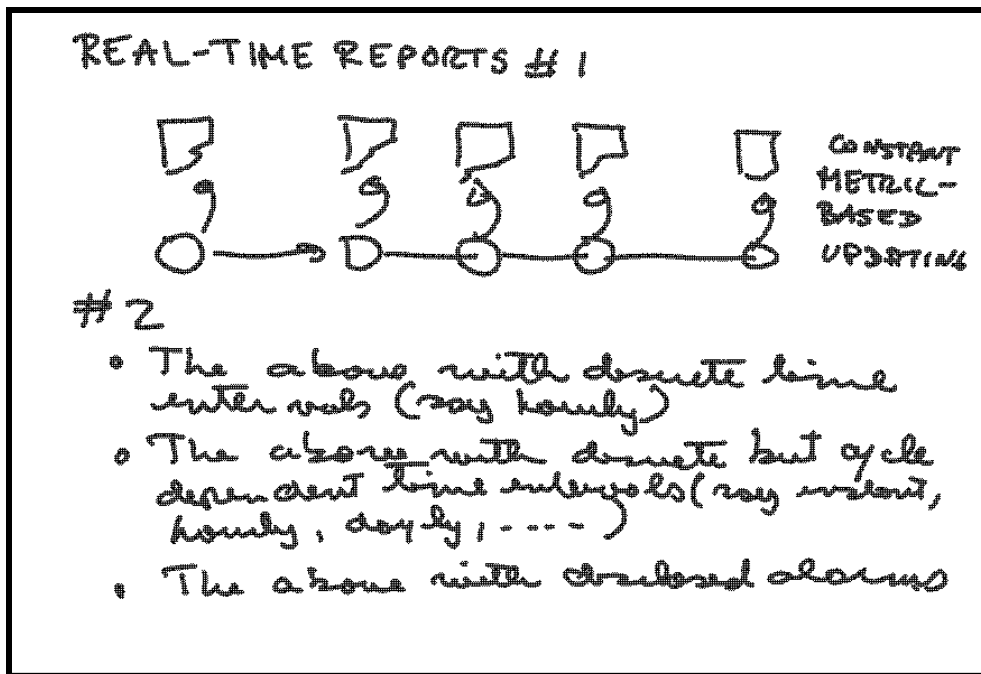 REAL-TIME REPORTS #1
CONSTANT
METRIC-
BASED
UPDATING
#2
• The above with discrete time
intervals (say hourly)
• The above with discrete but cycle
dependent time intervals (say instant,
hourly, dayly, ----)
• The above with disclosed alarms